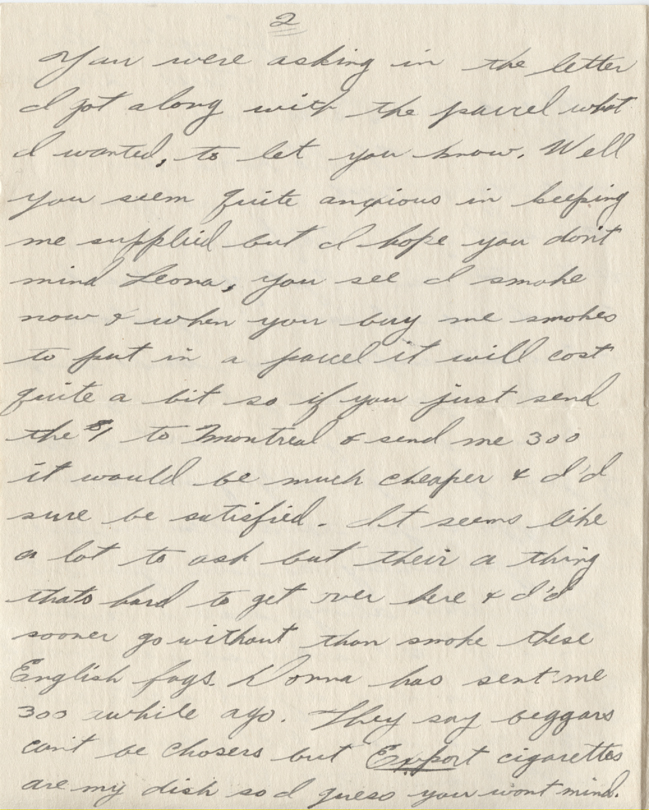 2
You were asking in the letter
I got along with the parcel what
I wanted, to let you know. Well
you seem quite anxious in keeping
me supplied but I hope you don't
mind Leona, you see I smoke
now & when you buy me smokes
to put in a parcel it will cost
quite a bit so if you just send
the $1 to Montreal & send me 300
it would be much cheaper & I'd
sure be satisfied. It seems like
a lot to ask but their a thing
thats hard to get over here & I'd
sooner go without than smoke these
English fags. Donna has sent me
300 awhile ago. They say beggars
can't be chosers but Export cigarettes
are my dish so I guess you wont mind.